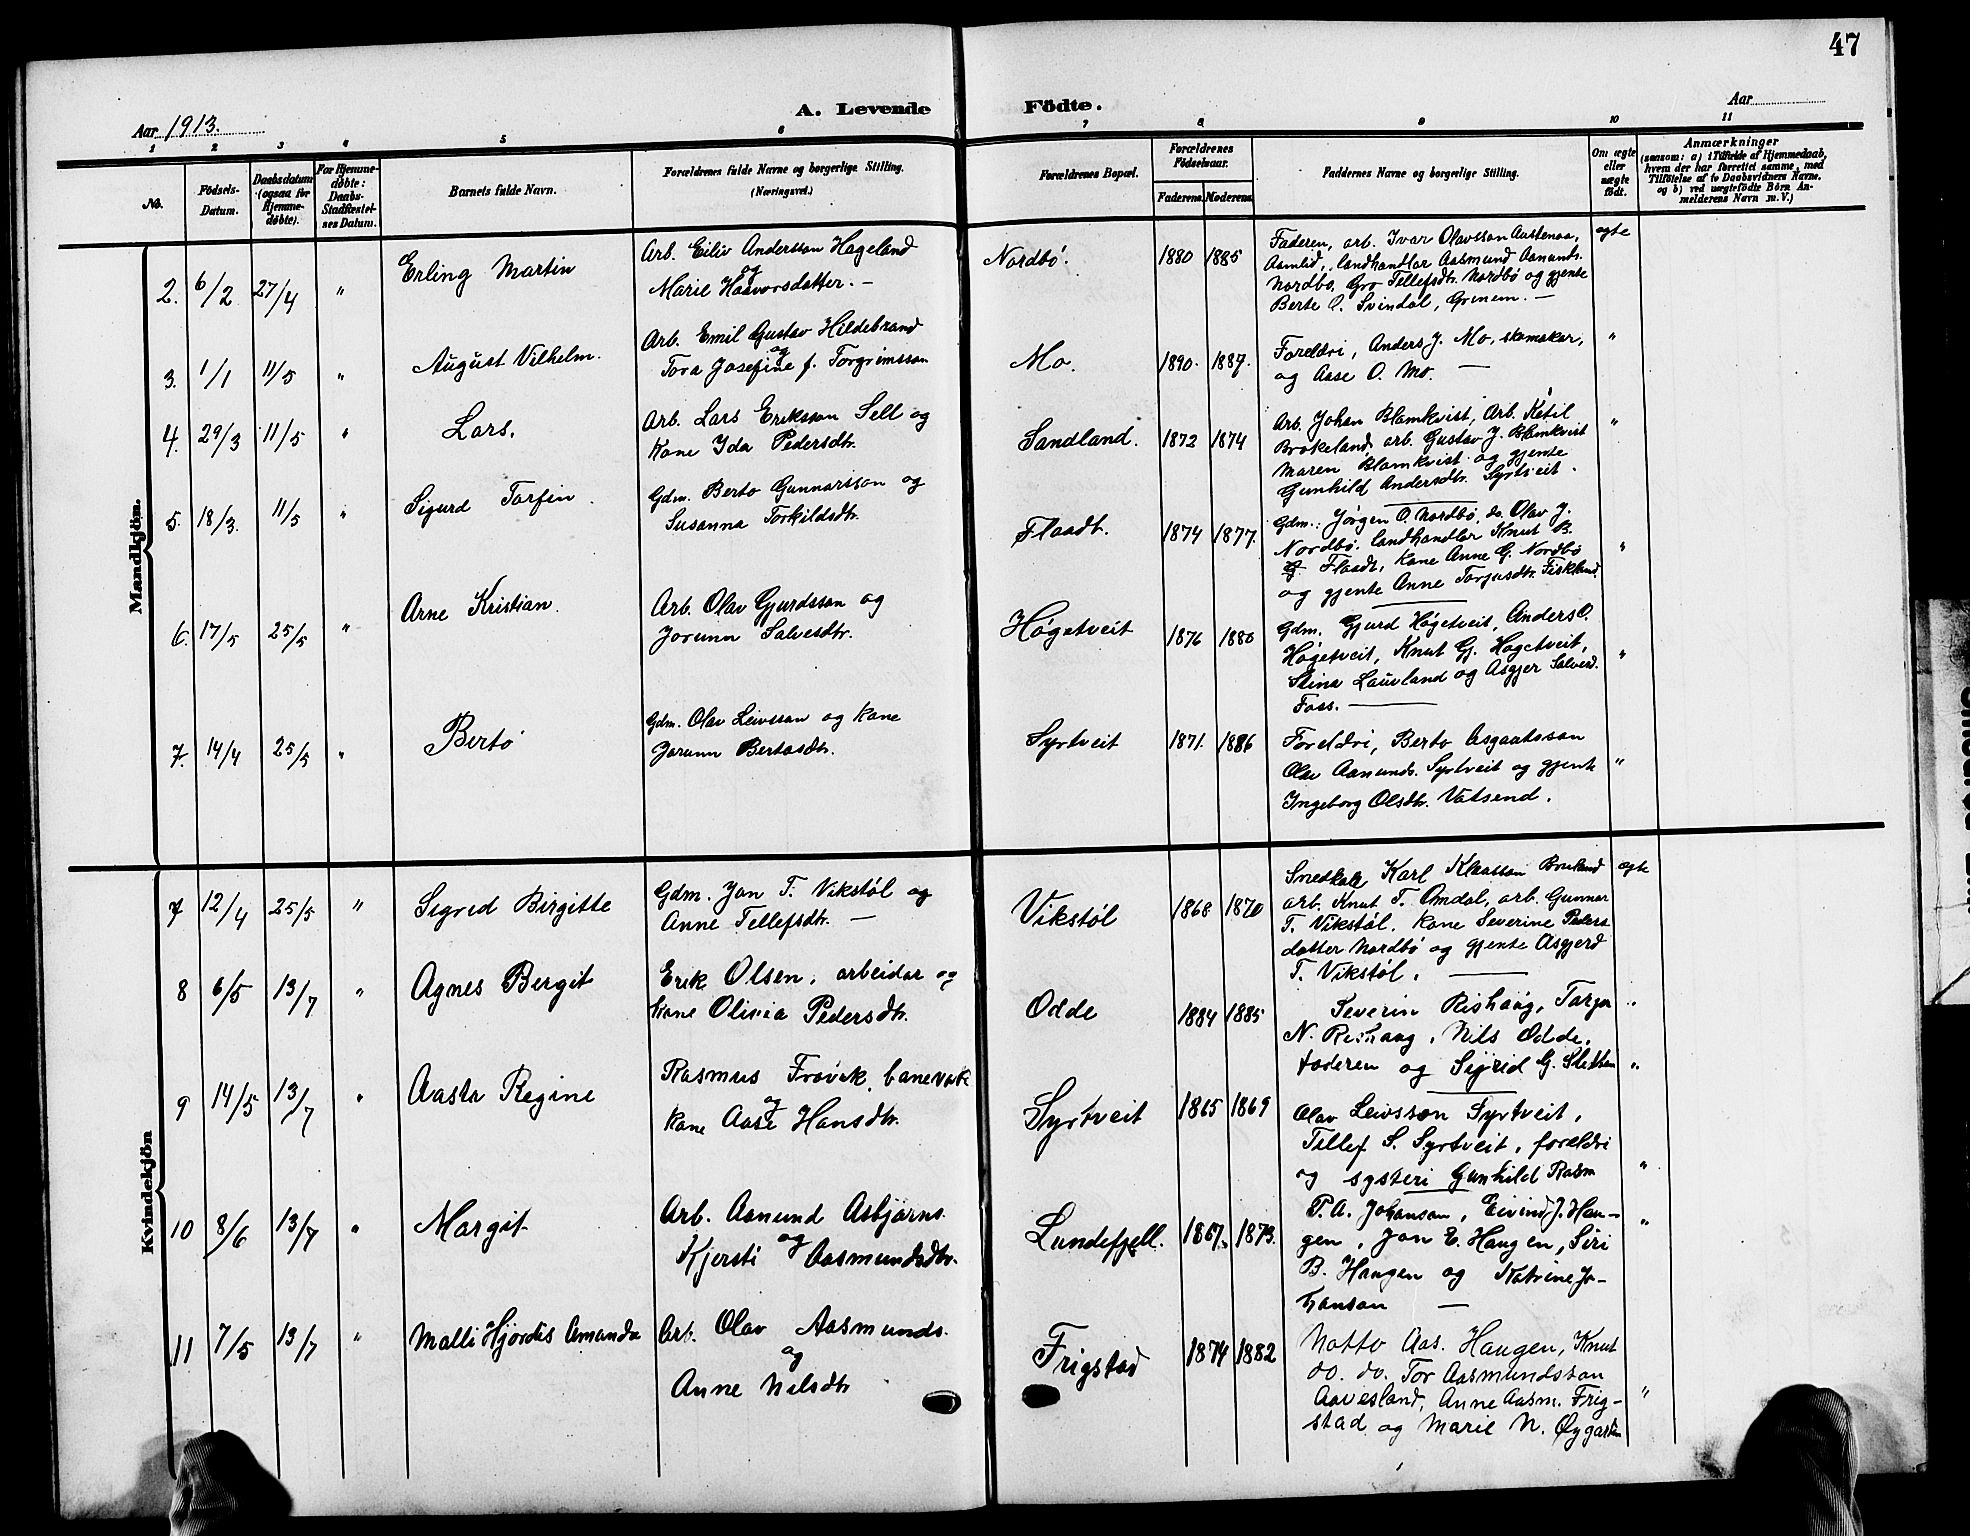 47
A. Levende Födte.
Aar 1913.
Aar
1 2 3 4 5 6 7 8 9 10 11
No.
Födsels-Datum.
Daabsdatum (ogsaa for Hjemmedøbte).
For Hjemmedøbte: Daabs-Stadfæstelses Datum.
Barnets fulde Navn.
Forældrenes fulde Navne og borgerlige Stilling. (Næringsvei.)
Forældrenes Bopæl.
Forældrenes Fødselsaar.
Faderens. Moderens.
Faddernes Navne og borgerlige Stilling.
Om ægte eller uægte født.
Anmærkninger
(saasom: a) i Tilfælde af Hjemmedaab, hvem der har forrettet samme, med Tilføielse af to Daabsvidners Navne, og b) ved uægtefødte Börn Anmelderens Navn m. V.)
Mandkjön.
2. 6/2 27/4 " Erling Martin
Arb. Eiliv Andersson Hageland
og
Marie Haavorsdatter. —
Nordbø. 1880 1885
Faderen, arb. Ivar Olavsson Aastenaa,
Aamlid, landhandlar Aasmund Aanunds.
Nordbø, Gro Tellefsdtr. Nordbø og gjente
Berte O. Svindal, Grinem. —
ægte
3. 1/1 11/5 " August Vilhelm.
Arb. Emil Gustav Hildebrand
og
Tora Josefine f. Torgrimsson
Mo. 1890. 1887.
Foreldri, Anders J. Mo, skomakar,
og Aase O. Mo. —
"
4. 29/3 11/5 " Lars.
Arb. Lars Eriksson Sell og
Kone Ida Pedersdtr.
Sandland. 1872 1874
Arb. Johan Blomkvist, Arb. Ketil
Brokeland, arb. Gustav J. Blomkvist
Maren Blomkvist og gjente
Gunhild Andersdtr. Syrtveit.
"
5. 18/3. 11/5 " Sigurd Torfin.
Gdm. Berto Gunnarsson og
Susanna Torkildsdtr.
Flaadt. 1874 1877.
Gdm.: Jørgen O. Nordbø, do. Olav J.
Nordbø. landhandler Knut B.
Flaadt, kone Anne G. Nordbø
og gjente Anne Torjusdtr. Fiskland.
"
6. 17/5 25/5 " Arne Kristian.
Arb. Olav Gjurdsson og
Jorunn Salvesdtr.
Høgetveit 1876 1880
Gdm. Gjurd Høgetveit, Anders O.
Høgetveit, Knut Gj. Høgetveit,
Stina Lauvland og Asgjer Salvesd.
Foss. —
"
7. 14/4 25/5 " Berto
Gdm. Olav Leivsson og kone
Jorunn Bertosdtr.
Syrtveit 1871. 1886
Foreldri, Berto Asgautsson
Olav Aanunds. Syrtveit og gjente
Ingeborg Olsdtr. Vatsend.
"
Kvindekjön
7 12/4 25/5 " Sigrid Birgitte
Gdm. Jon T. Vikstøl og
Anne Tellefsdtr. —
Vikstøl 1868 1870
Karl Klaasson
arb. Knut T. Omdal, arb. Gunnar
T. Vikstøl. Kone Severine Peders
datter Nordbø og gjente Asgjerd
T. Vikstøl. —
ægte
8 6/5 13/7 " Agnes Bergit
Erik Olsen, arbeidar og
kone Olivia Pedersdtr.
Odde 1884 1885
Severin Rishaug, Torjer
N. Rishaug, Nils Odde,
faderen og Sigrid G. Sletten
"
9 14/5 13/7 " Aasta Regine
Rasmus Frøvik, banevakt
og
kone Aase Hansdtr.
Syrtveit 1865 1869
Olav Leivsson Syrtveit,
Tellef S. Syrtveit, foreldri
og systeri Gunhild Rasm
"
10 8/6 13/7 " Margit
Arb. Aanund Asbjørns.
og
Kjersti Aasmundsdtr.
Lundefjell. 1867. 1873.
P. A. Johanson, Eivind J. Hau-
gen, Jon E. Haugen, Siri
B. Haugen og Katrine Jo-
hanson —
"
11 7/5 13/7 " Malli Hjørdis Amanda
Arb. Olav Aasmunds.
og
Anne Nilsdtr
Frigstad 1874 1882
Notto Aas. Haugen, Knut
do. do. Tor Aasmundsson
Aavesland, Anne Aasm. Frig-
stad og Marie N. Øygarden
"